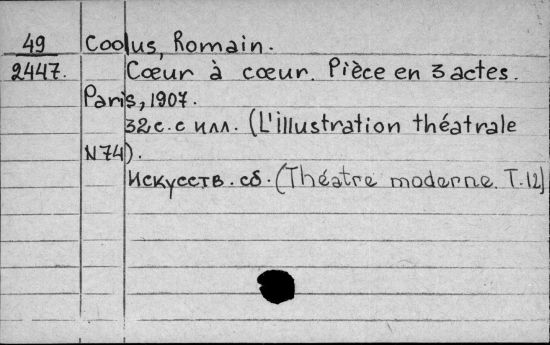 49 Coolus, Romain.
2447. Cœur à cœur. Pièce en 3 actes.
Paris, 1907.
32 с. с илл. (L'illustration théatrale
N 74).
Искусств. сб. (Théatre moderne. T. 12)